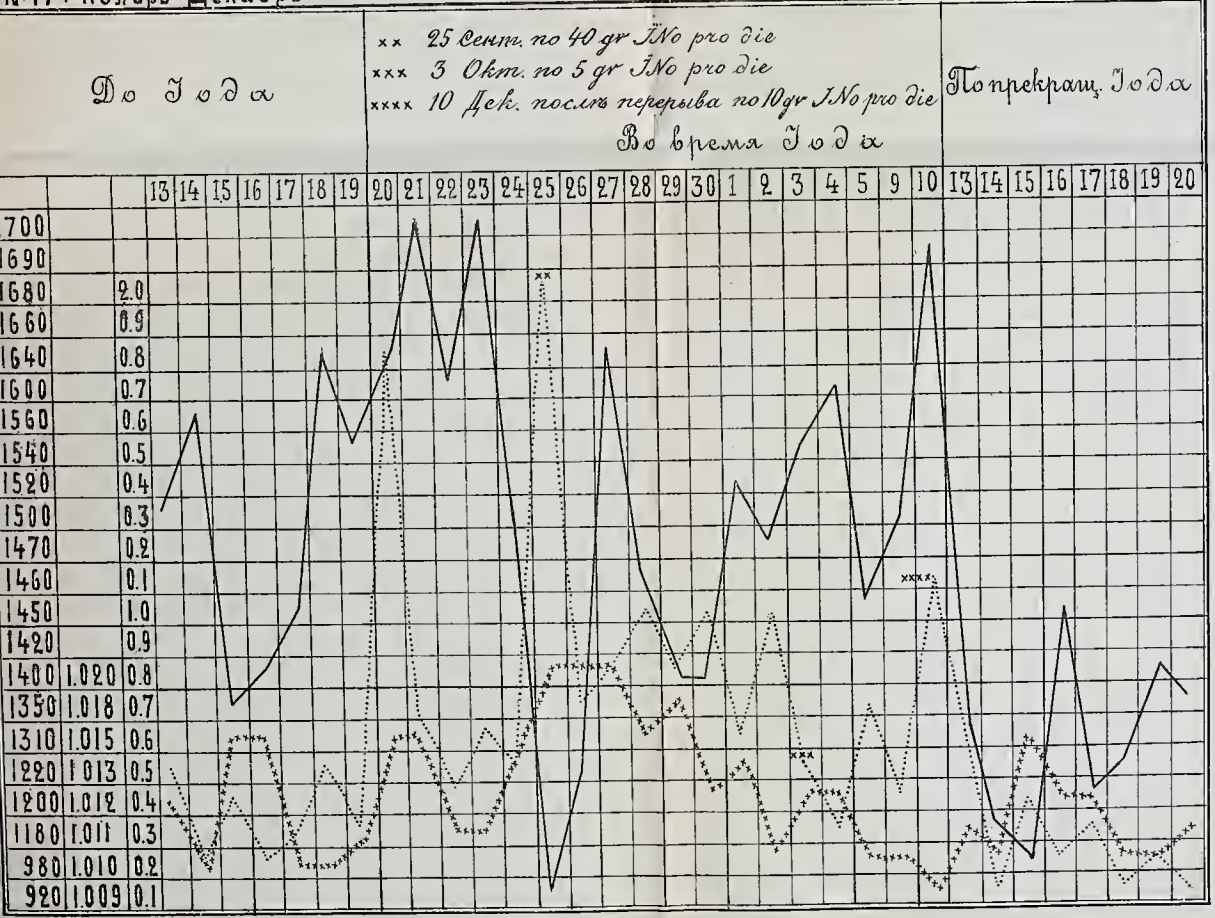 До Іода
×× 25 Сент. по 40 gr JNo pro die
××× 3 Окт. по 5 gr JNo pro die
×××× 10 Дек. послѣ перерыва по 10 gr JNo pro die
Во время Іода
По прекращ. Іода
13 14 15 16 17 18 19 20 21 22 23 24 25 26 27 28 29 30 1 2 3 4 5 9 10 13 14 15 16 17 18 19 20
700
1690
1680 2.0
1660 0.9
1640 0.8
1600 0.7
1560 0.6
1540 0.5
1520 0.4
1500 0.3
1470 0.2
1460 0.1
1450 1.0
1420 0.9
1400 1.020 0.8
1350 1.018 0.7
1310 1.015 0.6
1220 1013 0.5
1200 1.012 0.4
1180 1.011 0.3
980 1.010 0.2
920 1.009 0.1
××
×××
××××